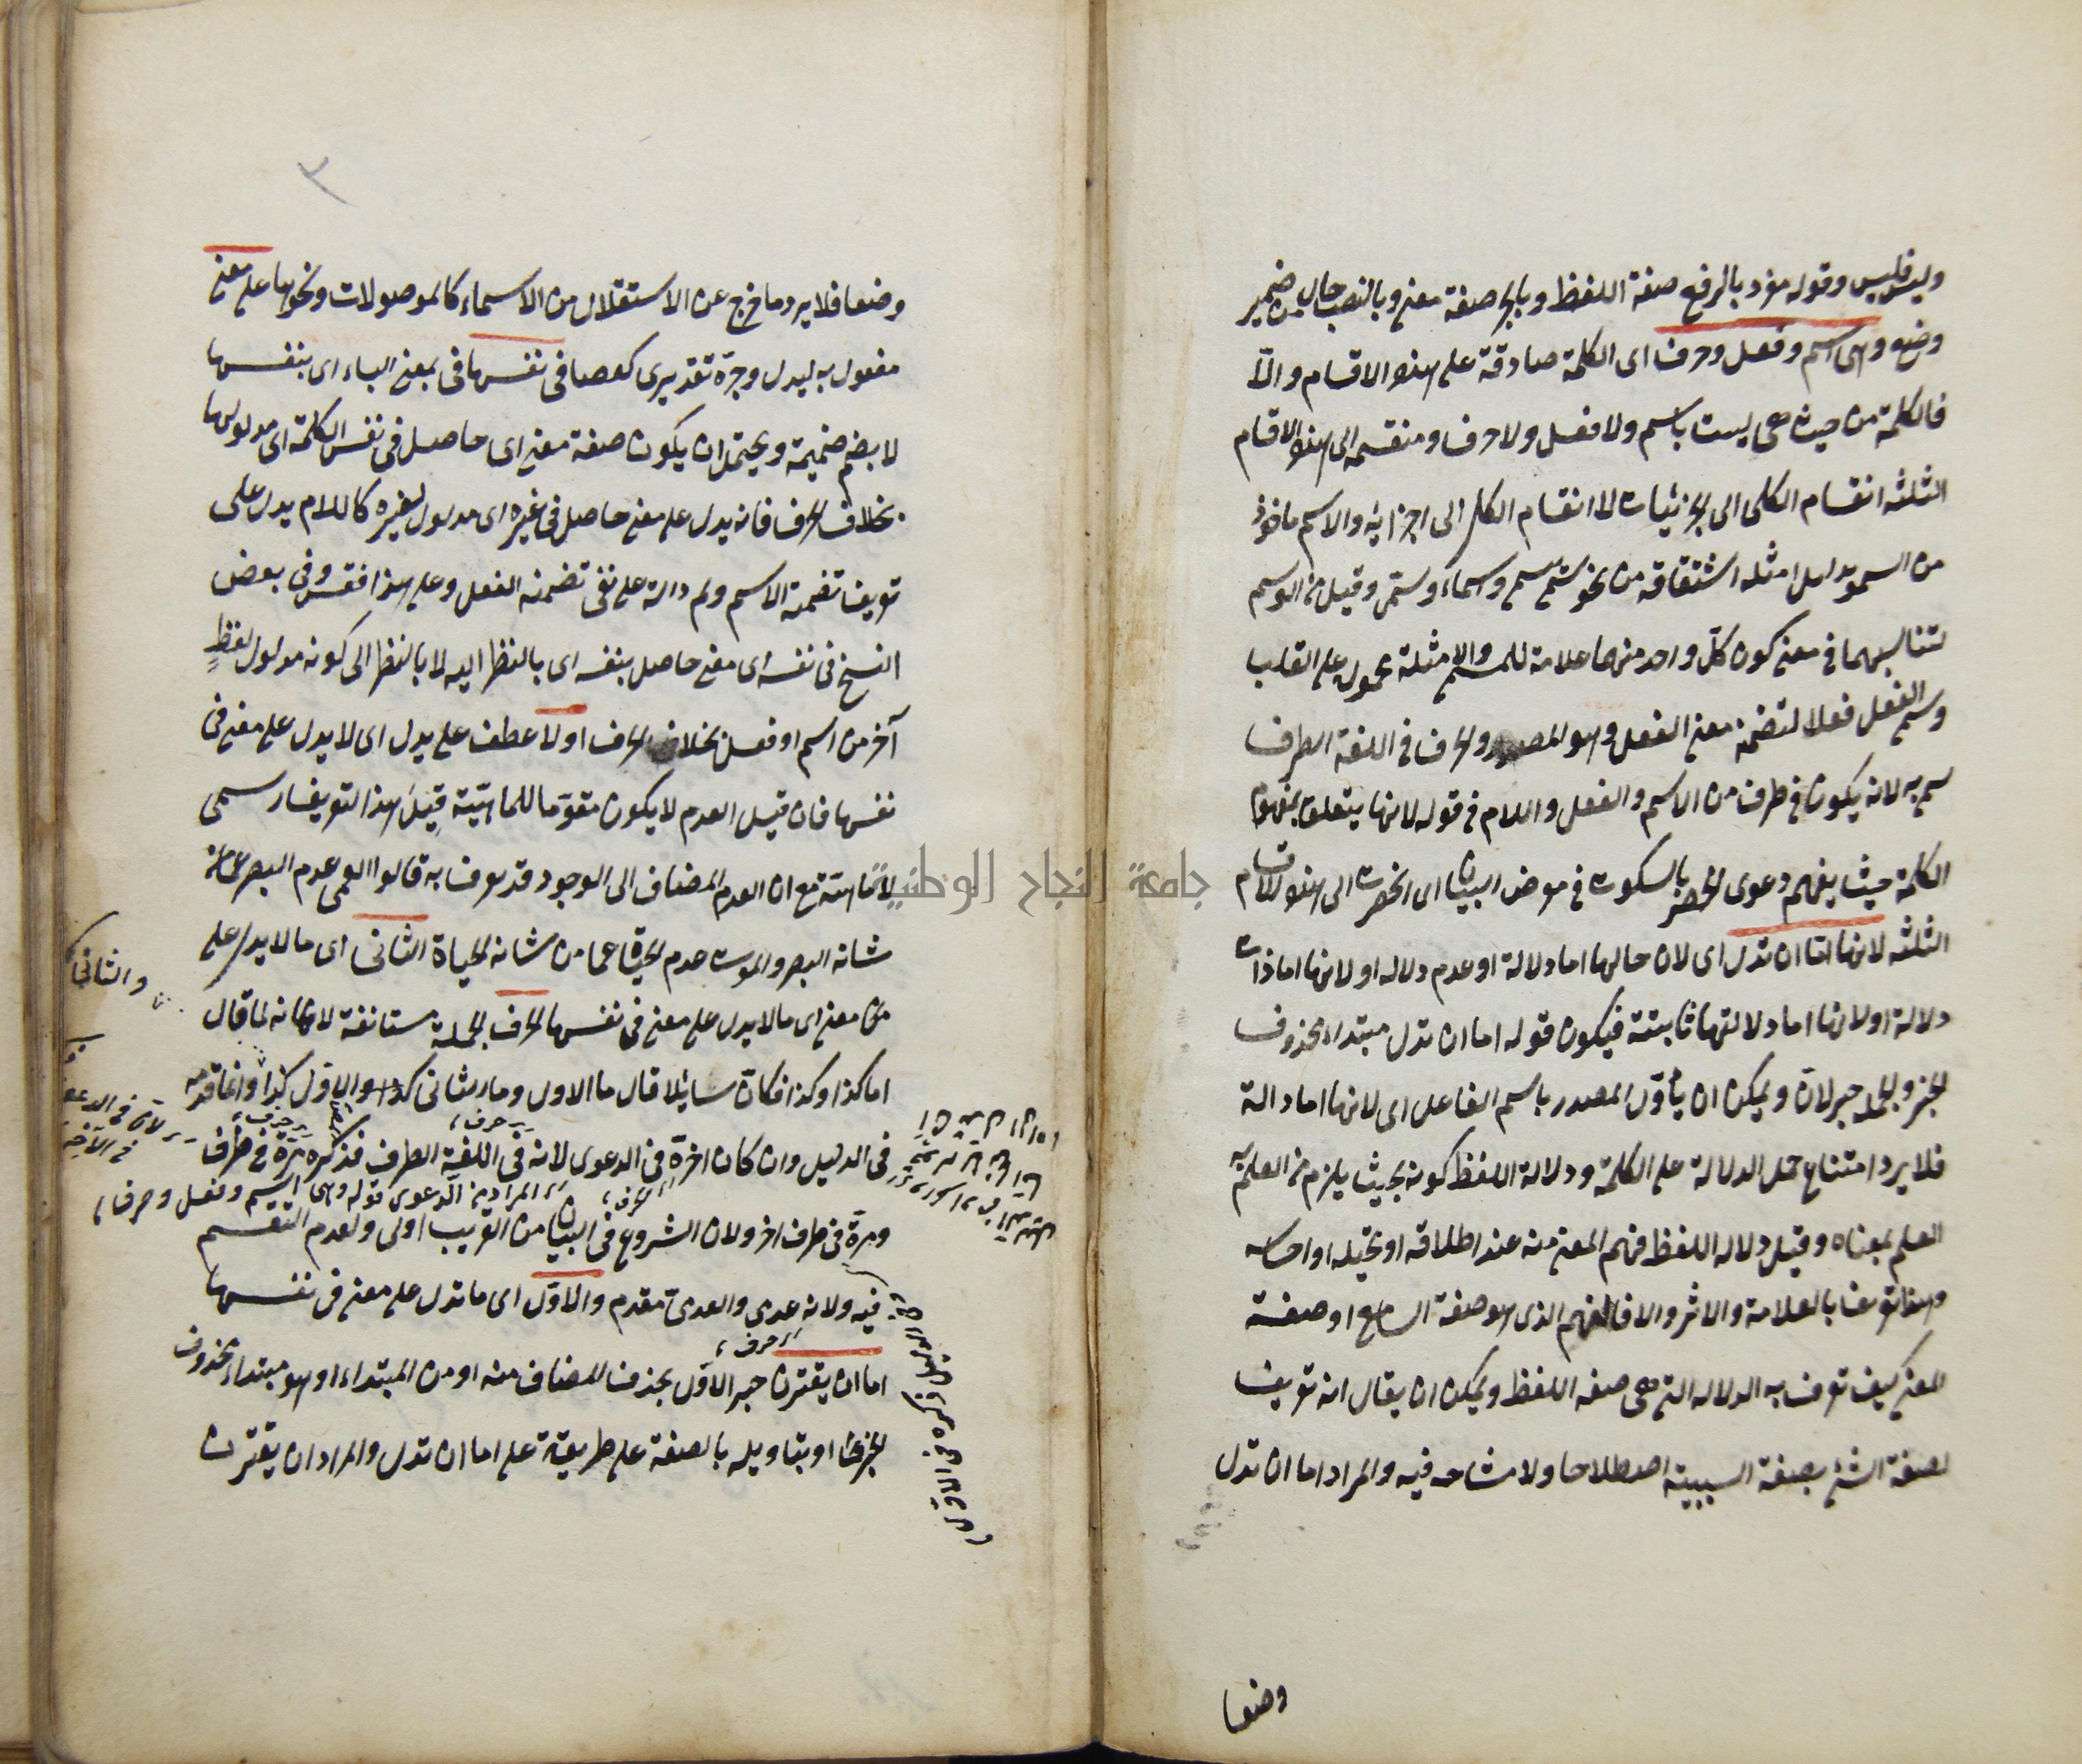 وليفليس وقوله مفرد بالرفع صفة اللفظ وبالجر صفة معنى وبالنصب حال من ضمير
وضع وهى اسم وفعل وحرف اى الكلمة صادقة على هذه الاقسام والا
فالكلمة من حيث هى ليست باسم ولا فعل ولا حرف ومنقسمه الى هذه الاقسام
الثلثه انقسام الكلى الى الجزئيات لا انقسام الكل الى اجزائه والاسم ماخوذ
من السمو بدليل امثله اشتقاقه من نحو سمى وسماء وسمى وقيل من الوسم
لتناسبهما فى معنى كون كل واحد منهما علامة للمسمى والامثلة محمول على القلب
وسمى الفعل فعلا لتضمنه معنى الفعل وهو المصدر والحرف فى اللغة الطرف
سمى به لانه يكون فى طرف من الاسم والفعل واللام فى قوله لانها يتعلق بمفهوم
الكلمة حيث يفهم دعوى الحصر بالسكوت فى موضع البيان اى انحصرت الى هذه الاقسام
الثلثه لانها اما ان تدل اى لان حالها اما دلالة او عدم دلاله او لانها اما ذات
دلالة او لانها اما دلالتها ثابتة فيكون قوله اما ان تدل مبتداء محذوف
الخبر والجملة خبر لان ويمكن ان يأوّل المصدر باسم الفاعل اى لانها اما دالة
فلا يرد امتناع حمل الدلالة على الكلمة ودلالة اللفظ كونه بحيث يلزم من العلم به
العلم بمعناه وقيل دلاله اللفظ فهم المعنى منه عند اطلاقه او تخيله او احساسه
وهذا تعريف بالعلامة والاثر والا فالفهم الذى هو صفة السامع او صفة
المعنى كيف تعرف به الدلاله التى هى صفه اللفظ ويمكن ان يقال انه تعريف
لصفة الشئ بصفة السببية اصطلاحا ولا مشاحه فيه والمراد اما ان تدل
وضعا
٣
وضعا فلا يرد ما خرج عن الاستقلال من الاسماء كالموصولات ونحوها على معنى
مفعول به ليدل وجره تقديرى كعصا فى نفسها فى بمعنى الباء اى بنفسها
لا بضم ضميمة ويحتمل ان يكون صفة معنى اى حاصل فى نفس الكلمة اى مدلولها
بخلاف الحرف فانه يدل على معنى حاصل فى غيره اى مدلول لغيره كاللام يدل على
تعريف تضمنه الاسم ولم دالة على نفى تضمنه الفعل وعلى هذا فقس وفى بعض
النسخ فى نفسه اى معنى حاصل بنفسه اى بالنظر اليه لا بالنظر الى كونه مدلول لفظٍ
آخر من اسم او فعل بخلاف الحرف اولا عطف على يدل اى لا يدل على معنى فى
نفسها فان قيل العدم لا يكون مقوما للماهية قيل هذا التعريف رسمى
لا ماهية مع ان العدم المضاف الى الوجود قد يعرف به قالوا العمى عدم البصر عما من
شانه البصر والموت عدم الحيوة عما من شانه الحياة الثانى اى ما لا يدل على
معنى اى ما لا يدل على معنى فى نفسها الحرف الجملة مستانفة لانه لما قال
اما كذا وكذا فكان سائلا قال ما الاول وما الثانى كذا والاول كذا وانما قدمه
فى الدليل وان كان اخره فى الدعوى لانه فى اللغة الطرف فذكره مرة فى طرف
المراد من الدعوى قوله وهى اسم وفعل وحرف
ومرة فى طرف اخر ولان الشروع فى البيان من القريب اولى ولعدم التقسم
فيه ولانه عدمى والعدمى مقدم والاول اى ما تدل على معنى فى نفسها
اما ان يقترن خبر الاول بحذف المضاف منه او من المبتداء او هو مبتداء محذوف
الخبر او بتاويله بالصفة على طريقة على اما ان تدل والمراد ان يقترن
والثانى
جامعة النجاح الوطنية